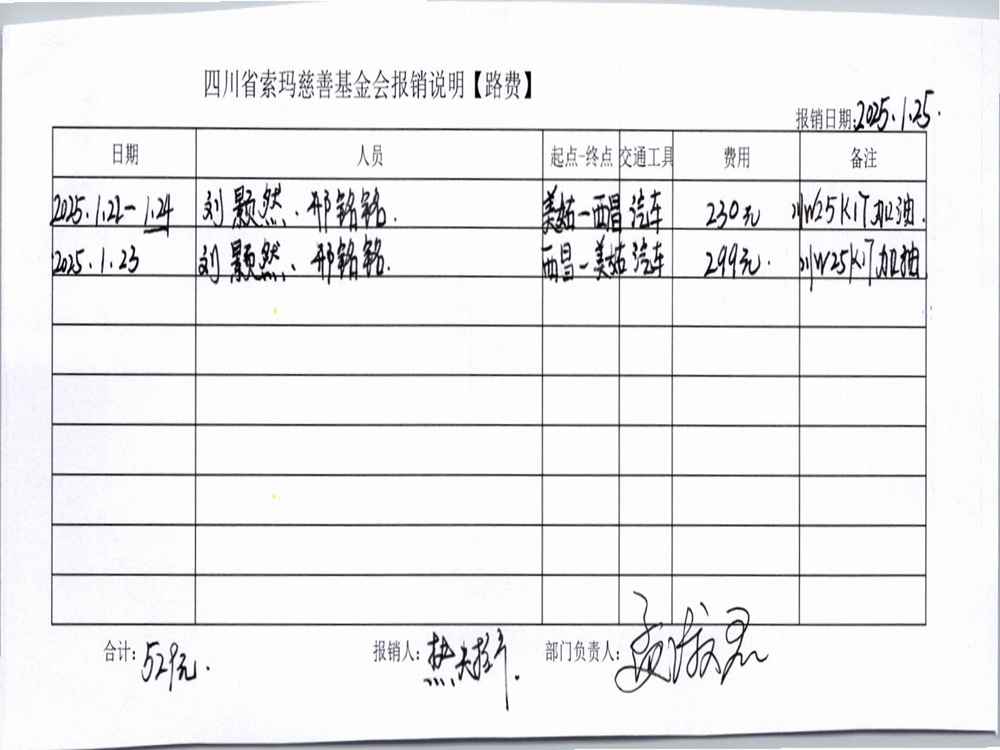 四川省索玛慈善基金会报销说明【路费】
报销日期:2025.1.25.
日期 人员 起点-终点 交通工具 费用 备注
2025.1.22-1.24 刘颢然、邢铭铭. 美姑—西昌 汽车 230元 川W25K17加油.
2025.1.23 刘颢然、邢铭铭. 西昌—美姑 汽车 299元. 川W25K17加油
合计:529元. 报销人: 部门负责人: